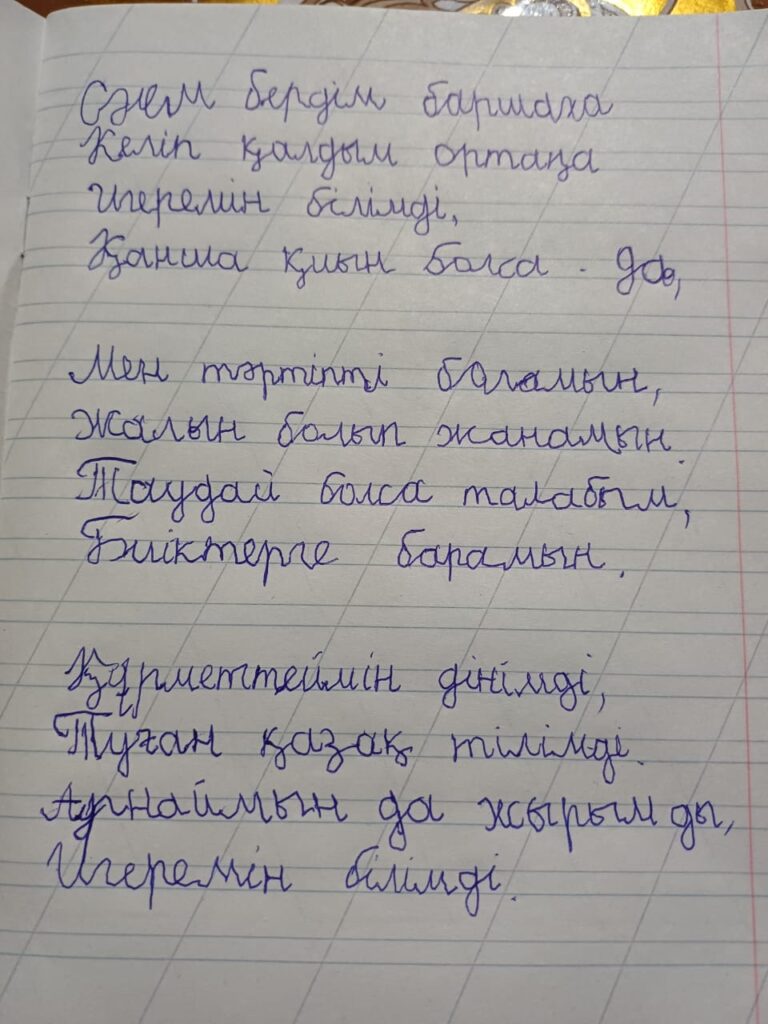 Сәлем бердім баршаха
Келіп қалдым ортаңа
Игеремін білімді,
Қанша қиын болса - да,
Мен тәртіпті баламын,
Жалын болып жанамын.
Таудай болса талабым,
Биіктерге барамын.
Құрметтеймін дінімді,
Туған қазақ тілімді.
Арнаймын да жырымды,
Игеремін білімді.